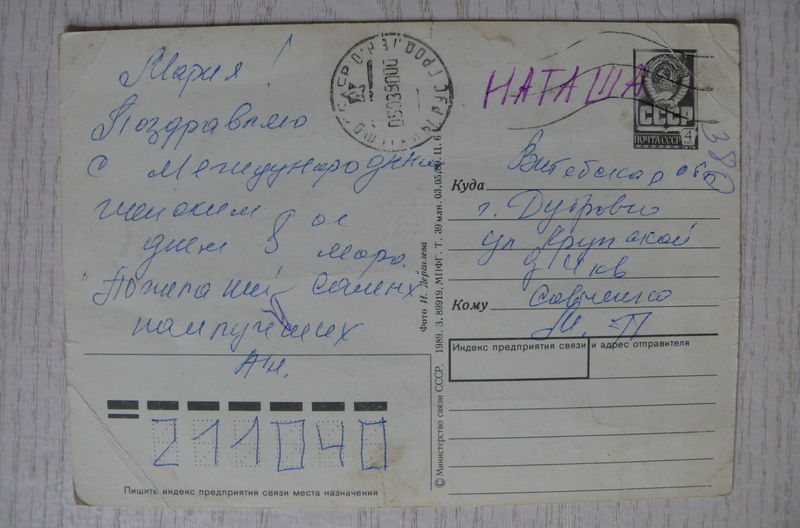 Мария!
Поздравляю
с Международным
женским
днем 8ое
марта.
Пожеланий самых
наилучших
Ан.
211040
Пишите индекс предприятия связи места назначения
НАТАША
СССР
ПОЧТА СССР
4
Витебская обл
Куда
г. Дубровно
ул Крупской
д кв
Кому
Савченко
М. П
Индекс предприятия связи и адрес отправителя
Фото И. Дергилева
© Министерство связи СССР. 1989. З. 89919. МПФГ. Т. 39 млн. 03.05.89. П. 6